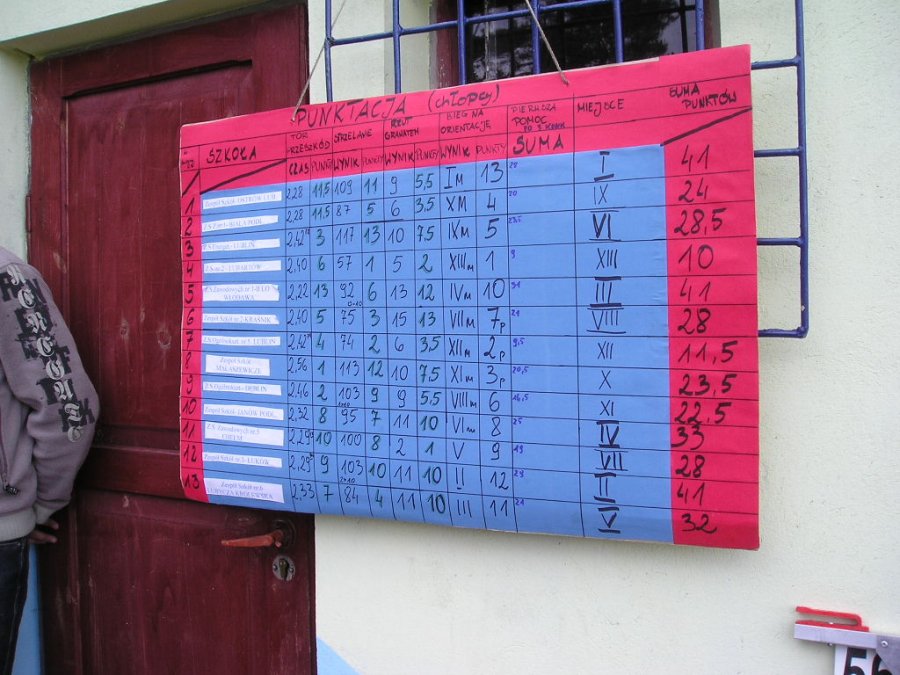 PUNKTACJA (chłopcy)
SZKOŁA TOR PRZESZKÓD STRZELANIE RZUT GRANATEM BIEG NA ORIENTACJĘ PIERWSZA POMOC MIEJSCE SUMA PUNKTÓW
CZAS PUNKTY WYNIK PUNKTY WYNIK PUNKTY WYNIK PUNKTY SUMA
1 Zespół Szkół - OSTRÓW LUB. 2,28 11,5 109 11 9 5,5 I M 13 I 41
2 BIAŁA PODL. 2,28 11,5 87 5 6 3,5 X M 4 IX 24
3 LUBLIN 2,42 3 117 13 10 7,5 IX M 5 VI 28,5
4 Z.S. nr 2 - LUBARTÓW 2,40 6 57 1 5 2 XIII M 1 XIII 10
5 Z.S. Zawodowych nr 1 WŁODAWA 2,22 13 92 6 13 12 IV M 10 III 41
6 Zespół Szkół nr 2 KRAŚNIK 2,40 5 75 3 15 13 VII M 7p VIII 28
7 Z.S. Ogólnokszt. nr 1 LUBLIN 2,42 4 74 2 6 3,5 XII M 2p XII 11,5
8 Zespół Szkół MAŁASZEWICZE 2,56 1 113 12 10 7,5 XI M 3p X 23,5
9 Z.S. Ogólnokszt. - DĘBLIN 2,46 2 103 9 9 5,5 VIII M 6 XI 22,5
10 Zespół Szkół - JANÓW PODL. 2,32 8 95 7 11 10 VI M 8 IV 33
11 Z.S. Zawodowych nr 5 CHEŁM 2,29 10 100 8 2 1 V 9 VII 28
12 Zespół Szkół nr 1 - ŁUKÓW 2,29 9 103 10 11 10 II 12 I 41
13 Zespół Szkół nr 6 2,33 7 84 4 11 10 III 11 V 32